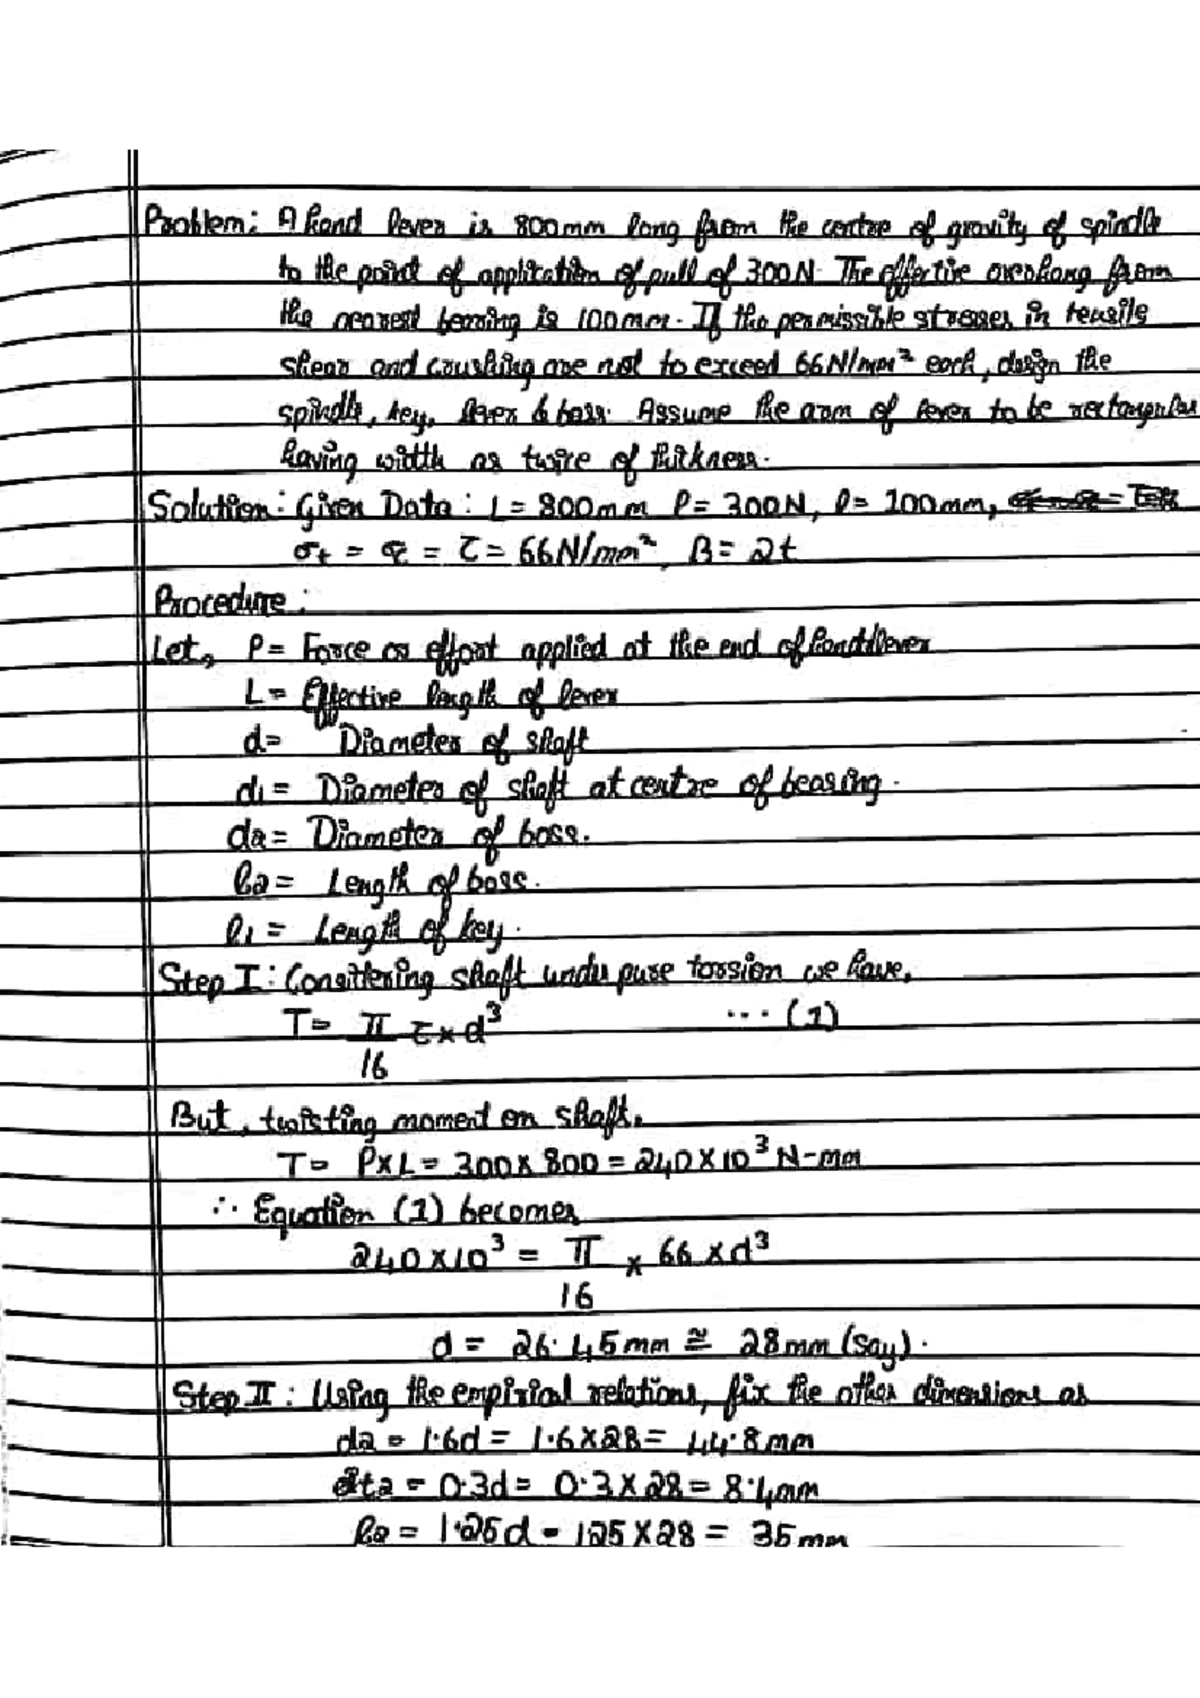 Problem: A hand lever is 800mm long from the centre of gravity of spindle
to the point of application of pull of 300N. The effective overhang from
the nearest bearing is 100mm. If the permissible stresses in tensile
shear and crushing are not to exceed 66N/mm² each, design the
spindle, key, lever & boss. Assume the arm of lever to be rectangular
having width as twice of thikness.
Solution: Given Data: L= 800mm P= 300N, l= 100mm,
σt = σc = τ = 66N/mm², B= 2t
Procedure:
Let, P= Force or effort applied at the end of handlever
L= Effective length of lever
d= Diameter of shaft
d1= Diameter of shaft at centre of bearing.
d2= Diameter of boss.
l2= Length of boss.
l1= Length of key.
Step I: Considering shaft under pure torsion we have,
T= π/16 τ×d³ ... (1)
But, twisting moment on shaft,
T= P×L= 300×800=240×10³N-mm
∴ Equation (1) becomes
240×10³ = π/16 × 66×d³
d= 26.45mm ≅ 28mm (say).
Step II: Using the empirical relations, fix the other dimensions as
d2 = 1.6d= 1.6×28= 44.8mm
t2 = 0.3d= 0.3×28= 8.4mm
l2= 1.25d = 125×28 = 35mm